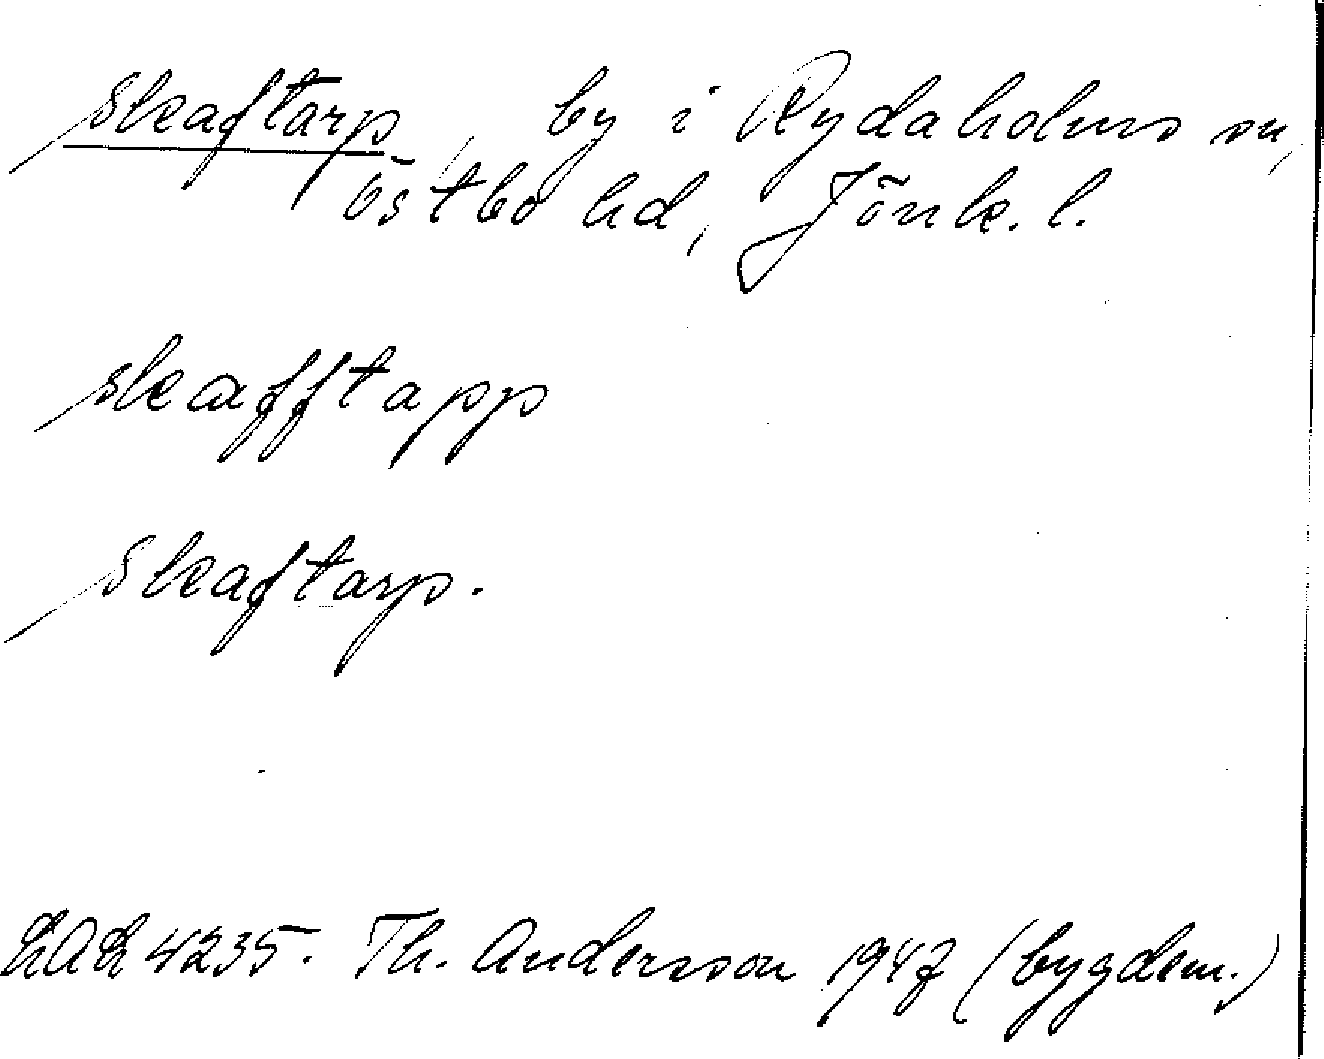 Skaftarp, by i Rydaholms sn,
Östbo hd, Jönk. l.
skafftapp
Skaftarp.
4235. Th. Andersson 1947 (bygdem.)